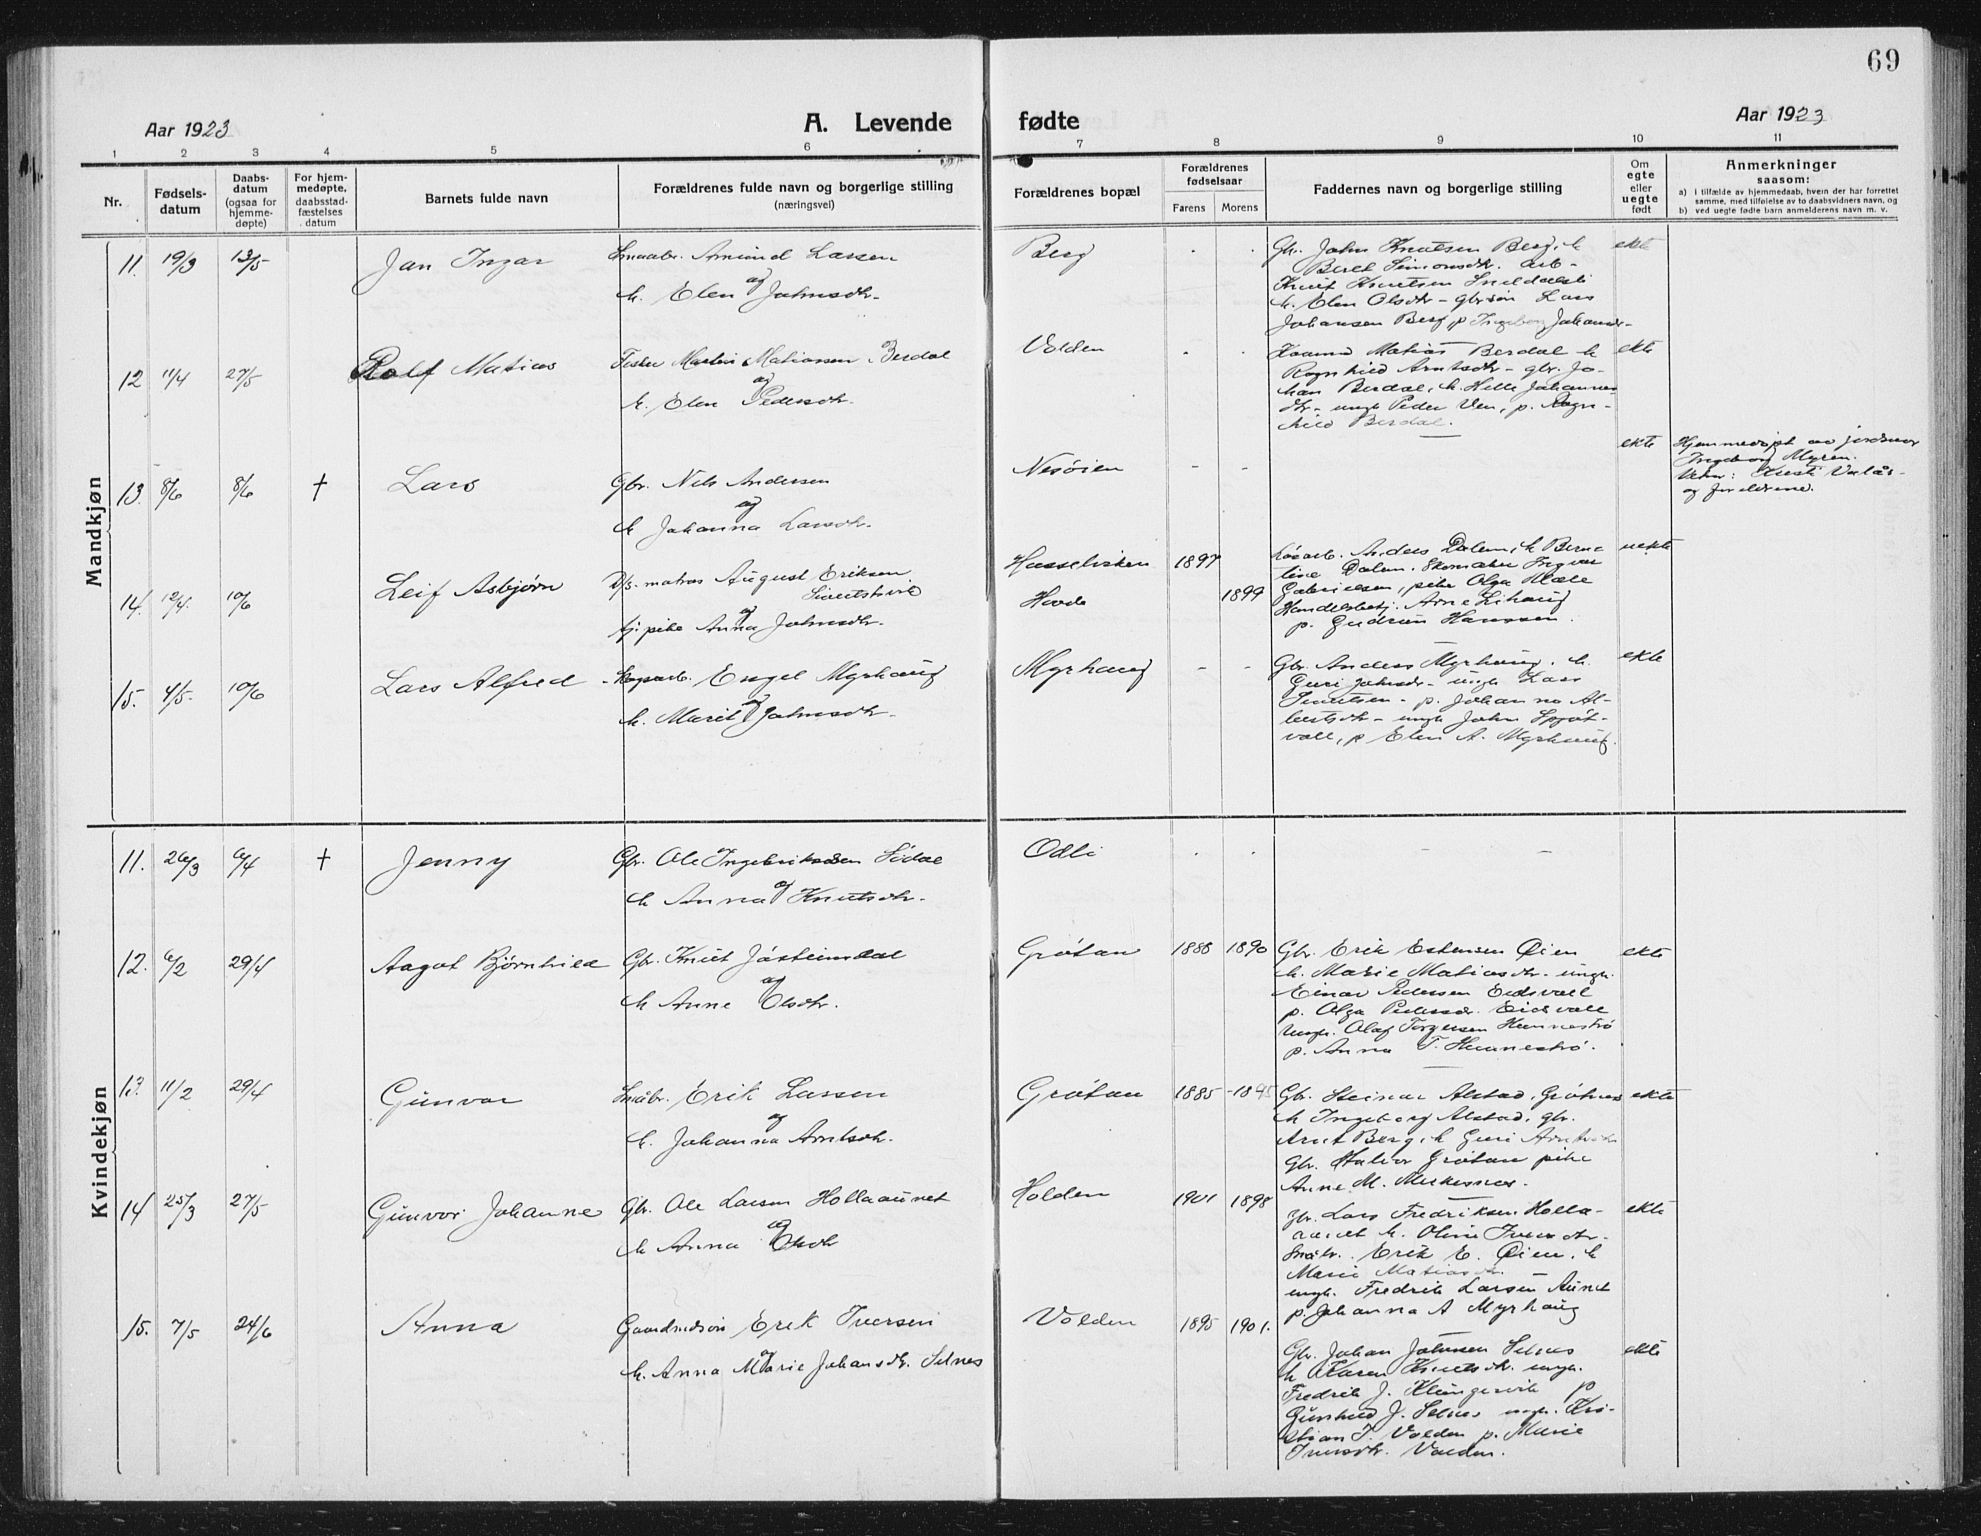 69
Aar 1923
A. Levende fødte
Aar 1923
1 2 3 4 5 6 7 8 9 10 11
Nr.
Fødsels-
datum
Daabs-
datum
(ogsaa for
hjemme-
døpte)
For hjem-
medøpte,
daabsstad-
fæstelses
datum
Barnets fulde navn
Forældrenes fulde navn og borgerlige stilling
(næringsvei)
Forældrenes bopæl
Forældrenes
fødselsaar
Farens Morens
Faddernes navn og borgerlige stilling
Om
egte
eller
uegte
født
Anmerkninger
saasom:
a) i tilfælde av hjemmedaab, hvem der har forrettet
samme, med tilføielse av to daabsvidners navn, og
b) ved uegte fødte barn anmelderens navn m. v.
Mandkjøn
11. 19/3 13/5 Jan Ingar
Smaabr. Amund Larsen
og
h. Elen Johnsdtr.
Berg
Gbr. John Knutsen Berg, h.
Beret Simonsdtr. arb.
Knut Knutsen
h. Elen Olsdtr - gbrsøn Lars
Johansen Berg p Ingeborg Johansdtr
ekte
12 11/4 27/5 Rolf Matias
Fisker Martin Matiassen Berdal
og
h. Elen Pedersdtr.
Volden
Matias Berdal h
Ragnhild Arntsdtr - gbr. Jo-
han Berdal, h. Johannes-
dtr - ungk Peder Ven, p. Ragn-
hild Berdal.
ekte
13. 8/6 8/6 † Lars
Gbr. Nils Andersen
og
h Johanna Larsdtr.
Nesøien
ekte
Hjemmedøpt av jordmor
Ingeborg Myren.
Vidner:
og foreldrene.
14. 12/4. 10/6 Leif Asbjørn
D/s. matros August Eriksen
og
tj. pike Anna Johnsdtr.
Hasselviken 1897
Hovde 1899
Løsarb. Anders Dalem, h. Bern-
tine Dalem. Skomaker Ingvar
Gabrielsen, pike Olga
Handelsbetj. Arne Lihaug
p. Gudrun Hanssen.
uekte
15. 4/5. 10/6 Lars Alfred
Engel Myrhaug
og
h. Marit Johnsdtr.
Myrhaug
Gbr. Anders Myrhaug. h.
Guri Johnsdr - ungk Lars
Knutsen - p. Johanna Al-
bertsdtr - ungk John
vold, p Elen A. Myrhaug.
ekte
Kvindekjøn
11. 26/3 6/4 † Jenny
Gbr. Ole Ingebriktsen Sødal
og
h Anna Knutsdtr.
Odli
12. 6/2 29/4 Aagot Bjørnhild
Gbr. Knut Jøsteinsdal
og
h Anne Olsdtr.
Grøtan 1888 1890
Gbr. Erik Estensen Øien
h. Marie Matiasdtr. ungk.
Einar Pedersen Eidsvoll
p. Olga Pedersdr. Eidsvoll
Ungk. Olaf Torgersen Hennestrø
p. Anna T. Hennestrø.
ekte
13. 11/2 29/4 Gunvor
Småbr. Erik Larsen
og
h. Johanna Arntsdtr.
Grøtan 1885 - 1895
Gbr. Steinar Alstad, Grøtnes
h Ingeborg Alstad, gbr.
Arnt Berg, h Guri Arntsdtr
Gbr. Halvor Grøtan pike
Anne M.
ekte
14 25/3 27/5 Gunvor Johanne
Gbr. Ole Larsen Hollaaunet
og
h Anna Olsdtr
Holden 1901 1898
Gbr. Lars Fredriksen Holla-
aunet h. Oline Iversdtr.
Småbr. Erik E. Øien. h
Marie Matiasdtr.
ungk. Fredrik Larsen Aunet
p. Johanna A Myrhaug
ekte
15. 7/5 24/6 Anna
Gaardmdsøn Erik Iversen
og
h. Anna Marie Johansdtr. Selnes
Volden 1895 1901.
Gbr. Johan Johnsen Selnes
h Karen Knutsdtr. ungk.
Fredrik J. Klungervik p
Gunhild J. Selnes ungk. Kri-
stian I. Volden p. Marie
Iversdtr. Volden.
ekte